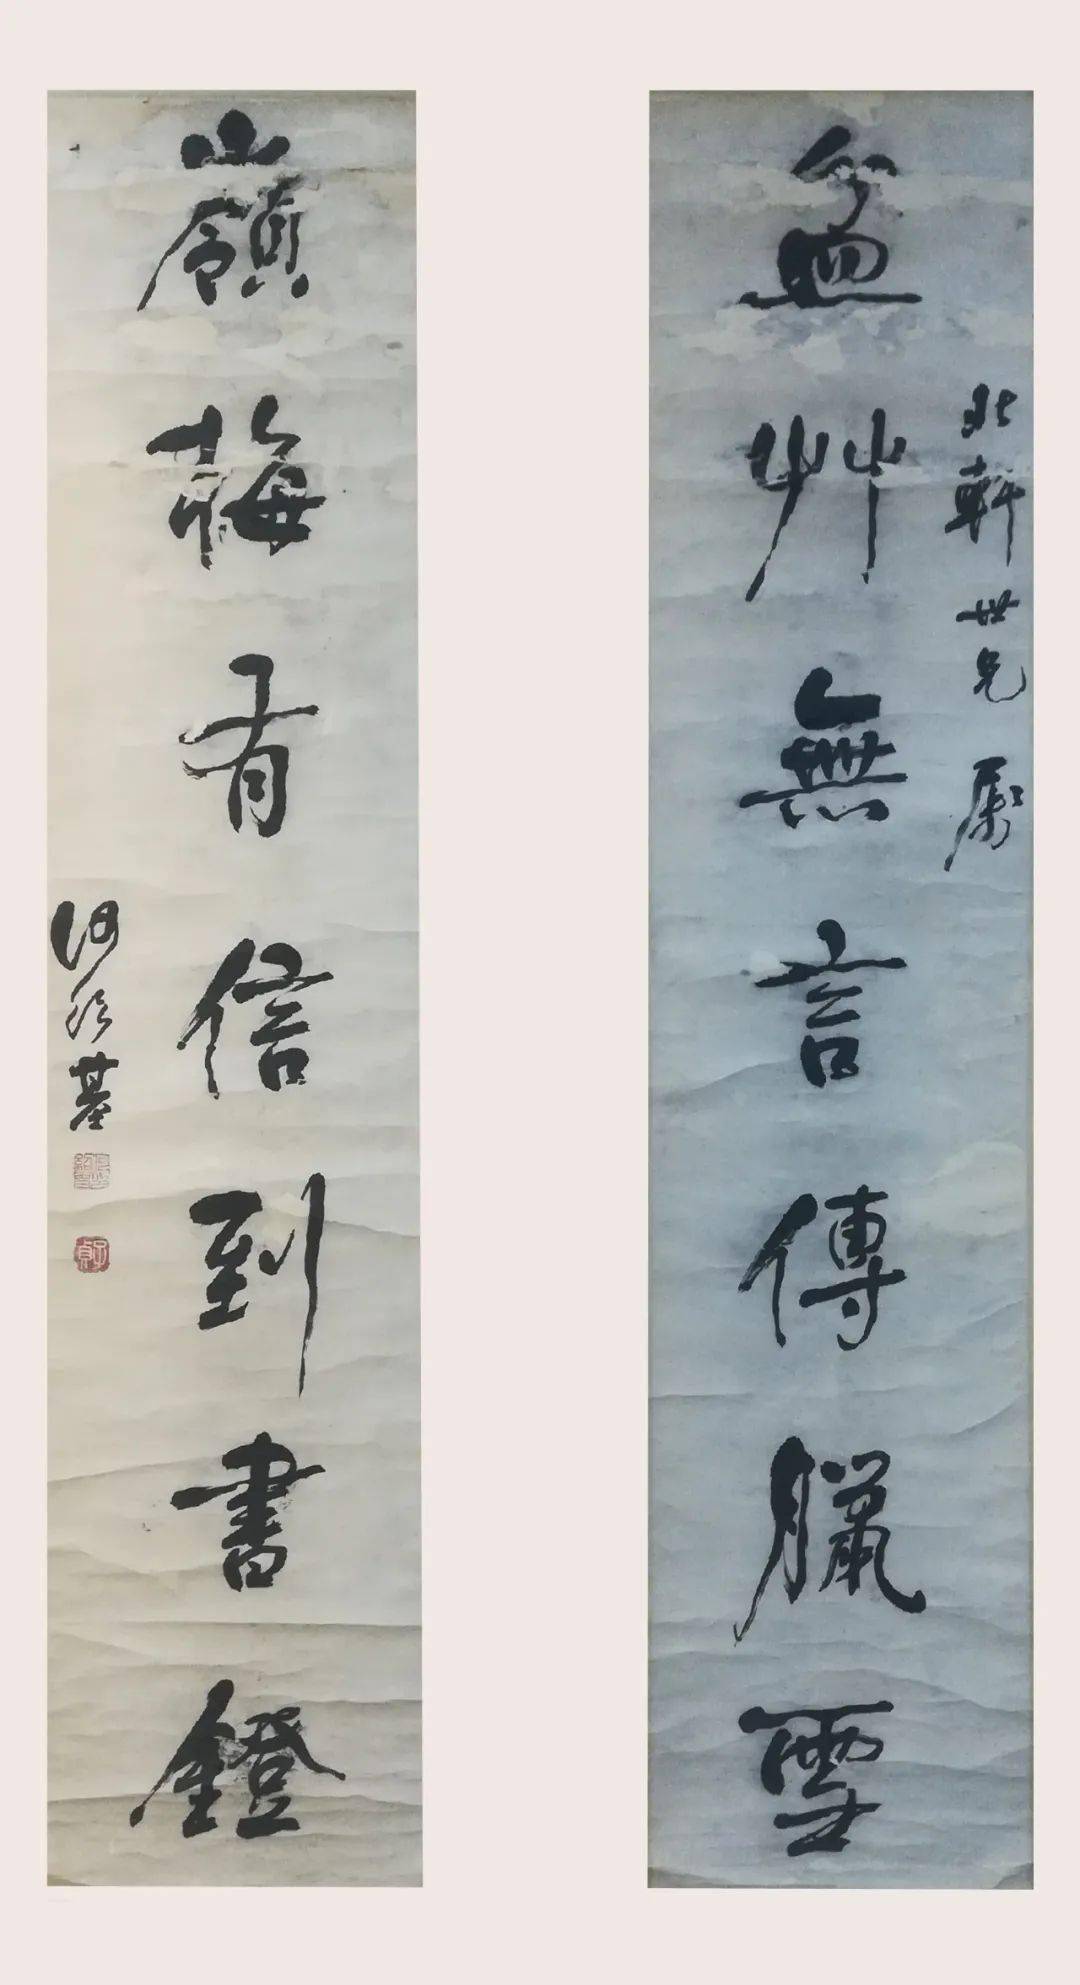 盆艸無言傳臘雪
北軒世兄屬
嶺梅有信到書鐙
何紹基
子貞